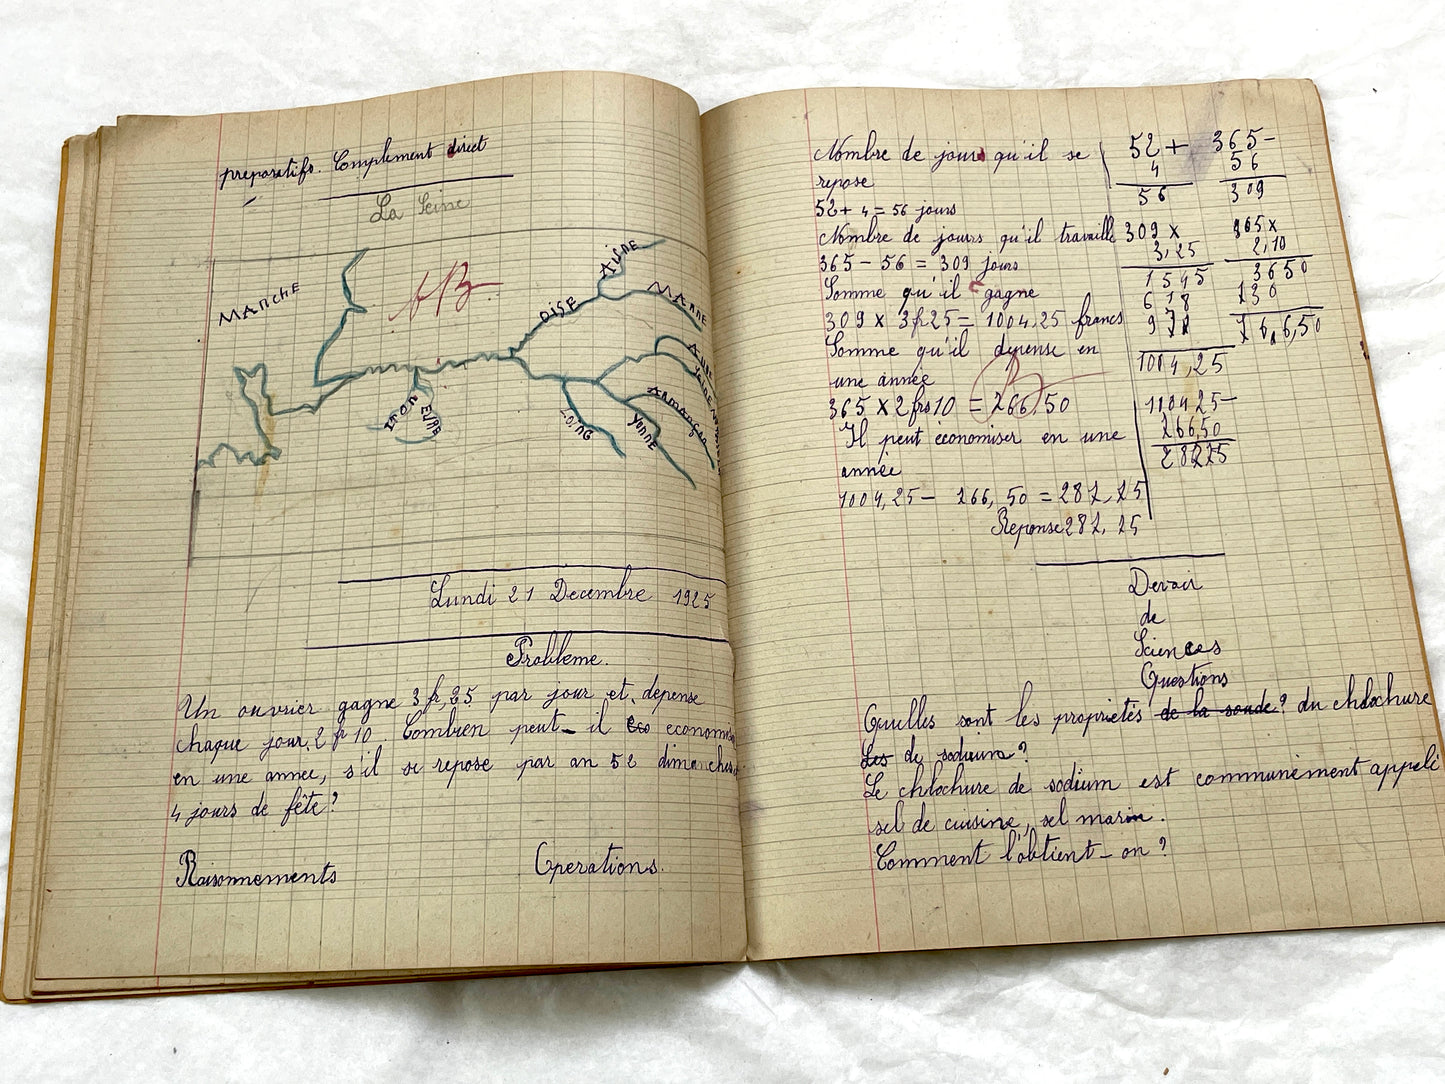 preparatifs. Complement direct
La Seine
MANCHE
tB
OISE
AISNE
MARNE
AUBE
ARMANÇON
YONNE
LOING
ITON
EURE
Lundi 21 Decembre 1925
Probleme.
Un ouvrier gagne 3 fr,25 par jour et dépense
chaque jour 2 fr 10. Combien peut-il eco economiser
en une année, s'il se repose par an 52 dimanches
4 jours de fête?
Raisonnements
Operations.
Nombre de jours qu'il se
repose
52 + 4 = 56 jours
Nombre de jours qu'il travaille
365 - 56 = 309 jours
Somme qu'il gagne
309 x 3f25 = 1004,25 francs
Somme qu'il dépense en
une année
365 x 2 frs 10 = 266,50
B
Il peut économiser en une
année
1004,25 - 266,50 = 287,25
Réponse 287,25
52 +
4
56
365 -
56
309
309 x
3,25
1545
618
927
1004,25
365 x
2,10
3650
730
766,50
100425 -
26650
28725
Devoir
de
Sciences
Questions
Quelles sont les propriétés de la soude? du chlochure
Les de sodium?
Le chlochure de sodium est communément appelé
sel de cuisine, sel marin.
Comment l'obtient-on?